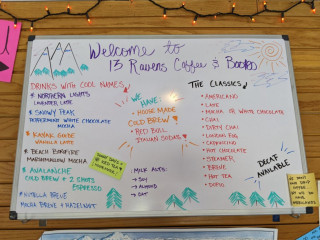 Welcome to
13 Ravens Coffee & Books
DRINKS WITH COOL NAMES!
NORTHERN LIGHTS
LAVENDER LATTE
SNOWY PEAK
PEPPERMINT WHITE CHOCOLATE
MOCHA
VANILLA LATTE
BEACH BONFIRE
MARSHMALLOW MOCHA
AVALANCHE
COLD BREW + 2 SHOTS
ESPRESSO
NUTELLA BREVE
MOCHA + HAZELNUT
WE HAVE
HOUSE MADE
COLD BREW!
RED BULL
ITALIAN SODAS!
MILK ALTS:
→ SOY
→ ALMOND
→ OAT
THE CLASSICS!
AMERICANO
LATTE
MOCHA OR WHITE CHOCOLATE
CHAI
DIRTY CHAI
LONDON FOG
CAPPUCCINO
HOT CHOCOLATE
STEAMER
BREVE
HOT TEA
DOPIO
DECAF
AVAILABLE